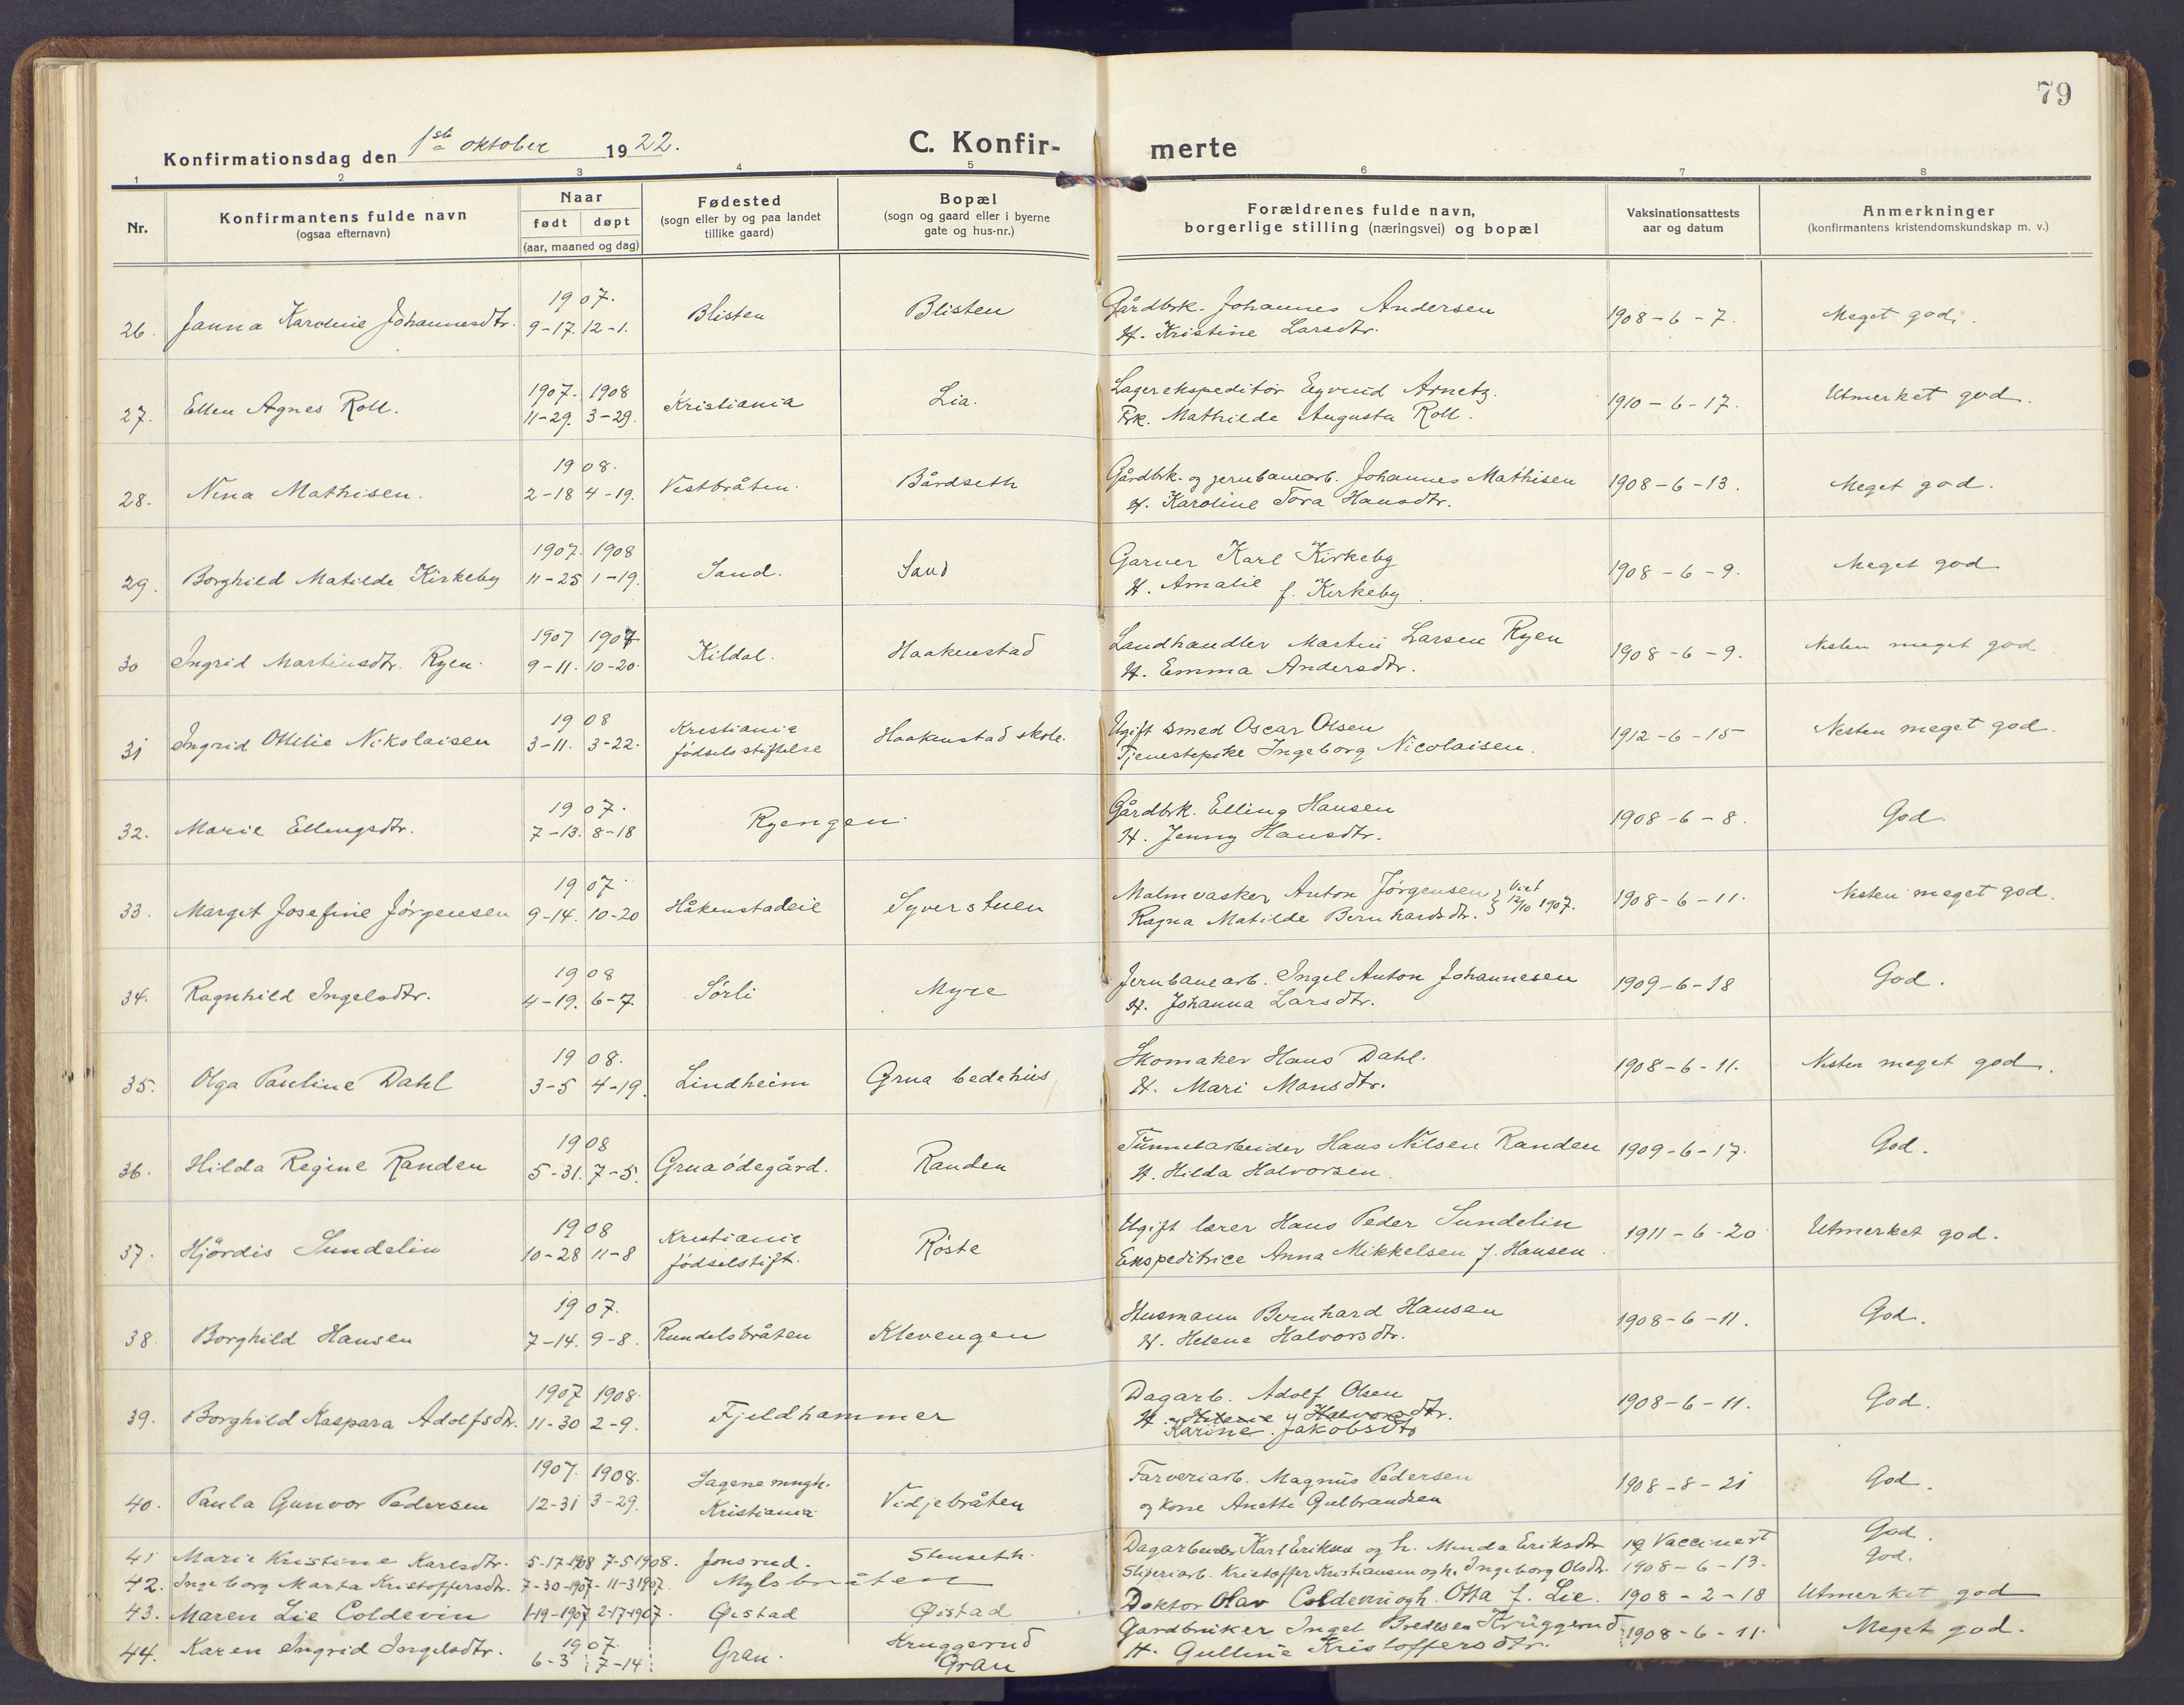 79
Konfirmationsdag den 1ste oktober 1922.
C. Konfir- merte
1 2 3 4 5 6 7 8
Nr.
Konfirmantens fulde navn
(ogsaa efternavn)
Naar
født døpt
(aar, maaned og dag)
Fødested
(sogn eller by og paa landet
tillike gaard)
Bopæl
(sogn og gaard eller i byerne
gate og hus-nr.)
Forældrenes fulde navn,
borgerlige stilling (næringsvei) og bopæl
Vaksinationsattests
aar og datum
Anmerkninger
(konfirmantens kristendomskundskap m. v.)
1907.
26. Janna Karoline Johannesdtr. 9-17. 12-1. Blisten Blisten Gårdbrk. Johannes Andersen 1908-6-7. Meget god.
H. Kristine Larsdtr.
1907. 1908
27. Ellen Agnes Roll. 11-29. 3-29. Kristiania Lia. Lagerekspeditør Eyvind Arnetz. 1910-6-17. Utmerket god.
Frk. Mathilde Augusta Roll.
1908.
28. Nina Mathisen. 2-18 4-19. Vestbråten. Bårdseth Gårdbrk. og jernbanearb. Johannes Mathisen 1908-6-13. Meget god.
H. Karoline Tora Hansdtr.
1907. 1908
29. Borghild Matilde Kirkeby 11-25 1-19. Sand. Sand Garver Karl Kirkeby 1908-6-9. Meget god
H. Amalie f. Kirkeby.
1907 1907
30 Ingrid Martinsdtr. Ryen. 9-11. 10-20. Kildal. Haakenstad Landhandler Martin Larsen Ryen 1908-6-9. Nesten meget god
H. Emma Andersdtr.
1908
31 Ingrid Ottilie Nikolaisen 3-11. 3-22. Kristiania fødselsstiftelse Haakenstad skole. Ugift smed Oscar Olsen 1912-6-15 Nesten meget god.
Tjenestepike Ingeborg Nicolaisen.
1907.
32. Marie Ellingsdtr. 7-13. 8-18 Ryengen. Gårdbrk. Elling Hansen 1908-6-8. God.
H. Jenny Hansdtr.
1907.
33. Margit Josefine Jørgensen 9-14. 10-20 Håkenstadeie Syverstuen Malmvasker Anton Jørgensen } Viet 1908-6-11. Nesten meget god.
Ragna Matilde Bernhardsdtr. } 12/10 1907.
1908
34. Ragnhild Ingelsdtr. 4-19. 6-7. Sørli Myre Jernbanearb. Ingel Anton Johannesen 1909-6-18 God.
H. Johanna Larsdtr.
1908.
35. Olga Pauline Dahl 3-5 4-19. Lindheim Grua bedehus Skomaker Hans Dahl. 1908-6-11. Nesten meget god.
H. Mari Monsdtr.
1908
36. Hilda Regine Randen 5-31. 7-5. Gruaødegård. Randen Tunnelarbeider Hans Nilsen Randen 1909-6-17. God.
H. Hilda Halvorsen.
1908
37. Hjördis Sundelin 10-28 11-8 Kristiania fødselstift. Røste Ugift lærer Hans Peder Sundelin 1911-6-20 Utmerket god.
Ekspeditrice Anna Mikkelsen f. Hansen.
1907.
38. Borghild Hansen 7-14. 9-8. Rundelsbråten Klevengen Husmann Bernhard Hansen 1908-6-11. God.
H. Helene Halvorsdtr.
1907 1908.
39. Borghild Kaspara Adolfsdtr. 11-30 2-9. Fjeldhammer Dagarb. Adolf Olsen 1908-6-11. God.
H. Helene Halvorsdtr.
Karine Jakobsdtr
1907. 1908.
40. Paula Gunvor Pedersen 12-31 3-29. Sagene mngh. Kristiania Vidjebråten Farveriarb. Magnus Pedersen 1908-8-21 God.
og kone Anette Gulbrandsen
41 Marie Kristine Karlsdtr. 5-17-1908 7-5 1908. Jonsrud. Stenseth. Dagarbeider Karl Eriksen og h. Minda Eriksdtr Vaccinert God.
42. Ingeborg Marta Kristoffersdtr. 7-30-1907- 11-3 1907 Mylsbråten Sliperiarb. Kristoffer Kristiansen og h. Ingeborg Olsdtr. 1908-6-13. God.
43. Maren Lie Coldevin 1-19-1907 2-17-1907. Øistad Øistad Doktor Olav Coldevin og h. Otta f. Lie. 1908-2-18 Utmerket god
1907.
44. Karen Ingrid Ingelsdtr. 6-3 7-14 Gran. Kruggerud Gran Gardbruker Ingel Bredesen Kruggerud 1908-6-11. Meget god.
H. Gulline Kristoffersdtr.